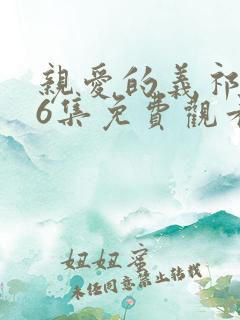 親愛的義祁
6集免費觀看
妞妞蜜
未任同意禁止轉載